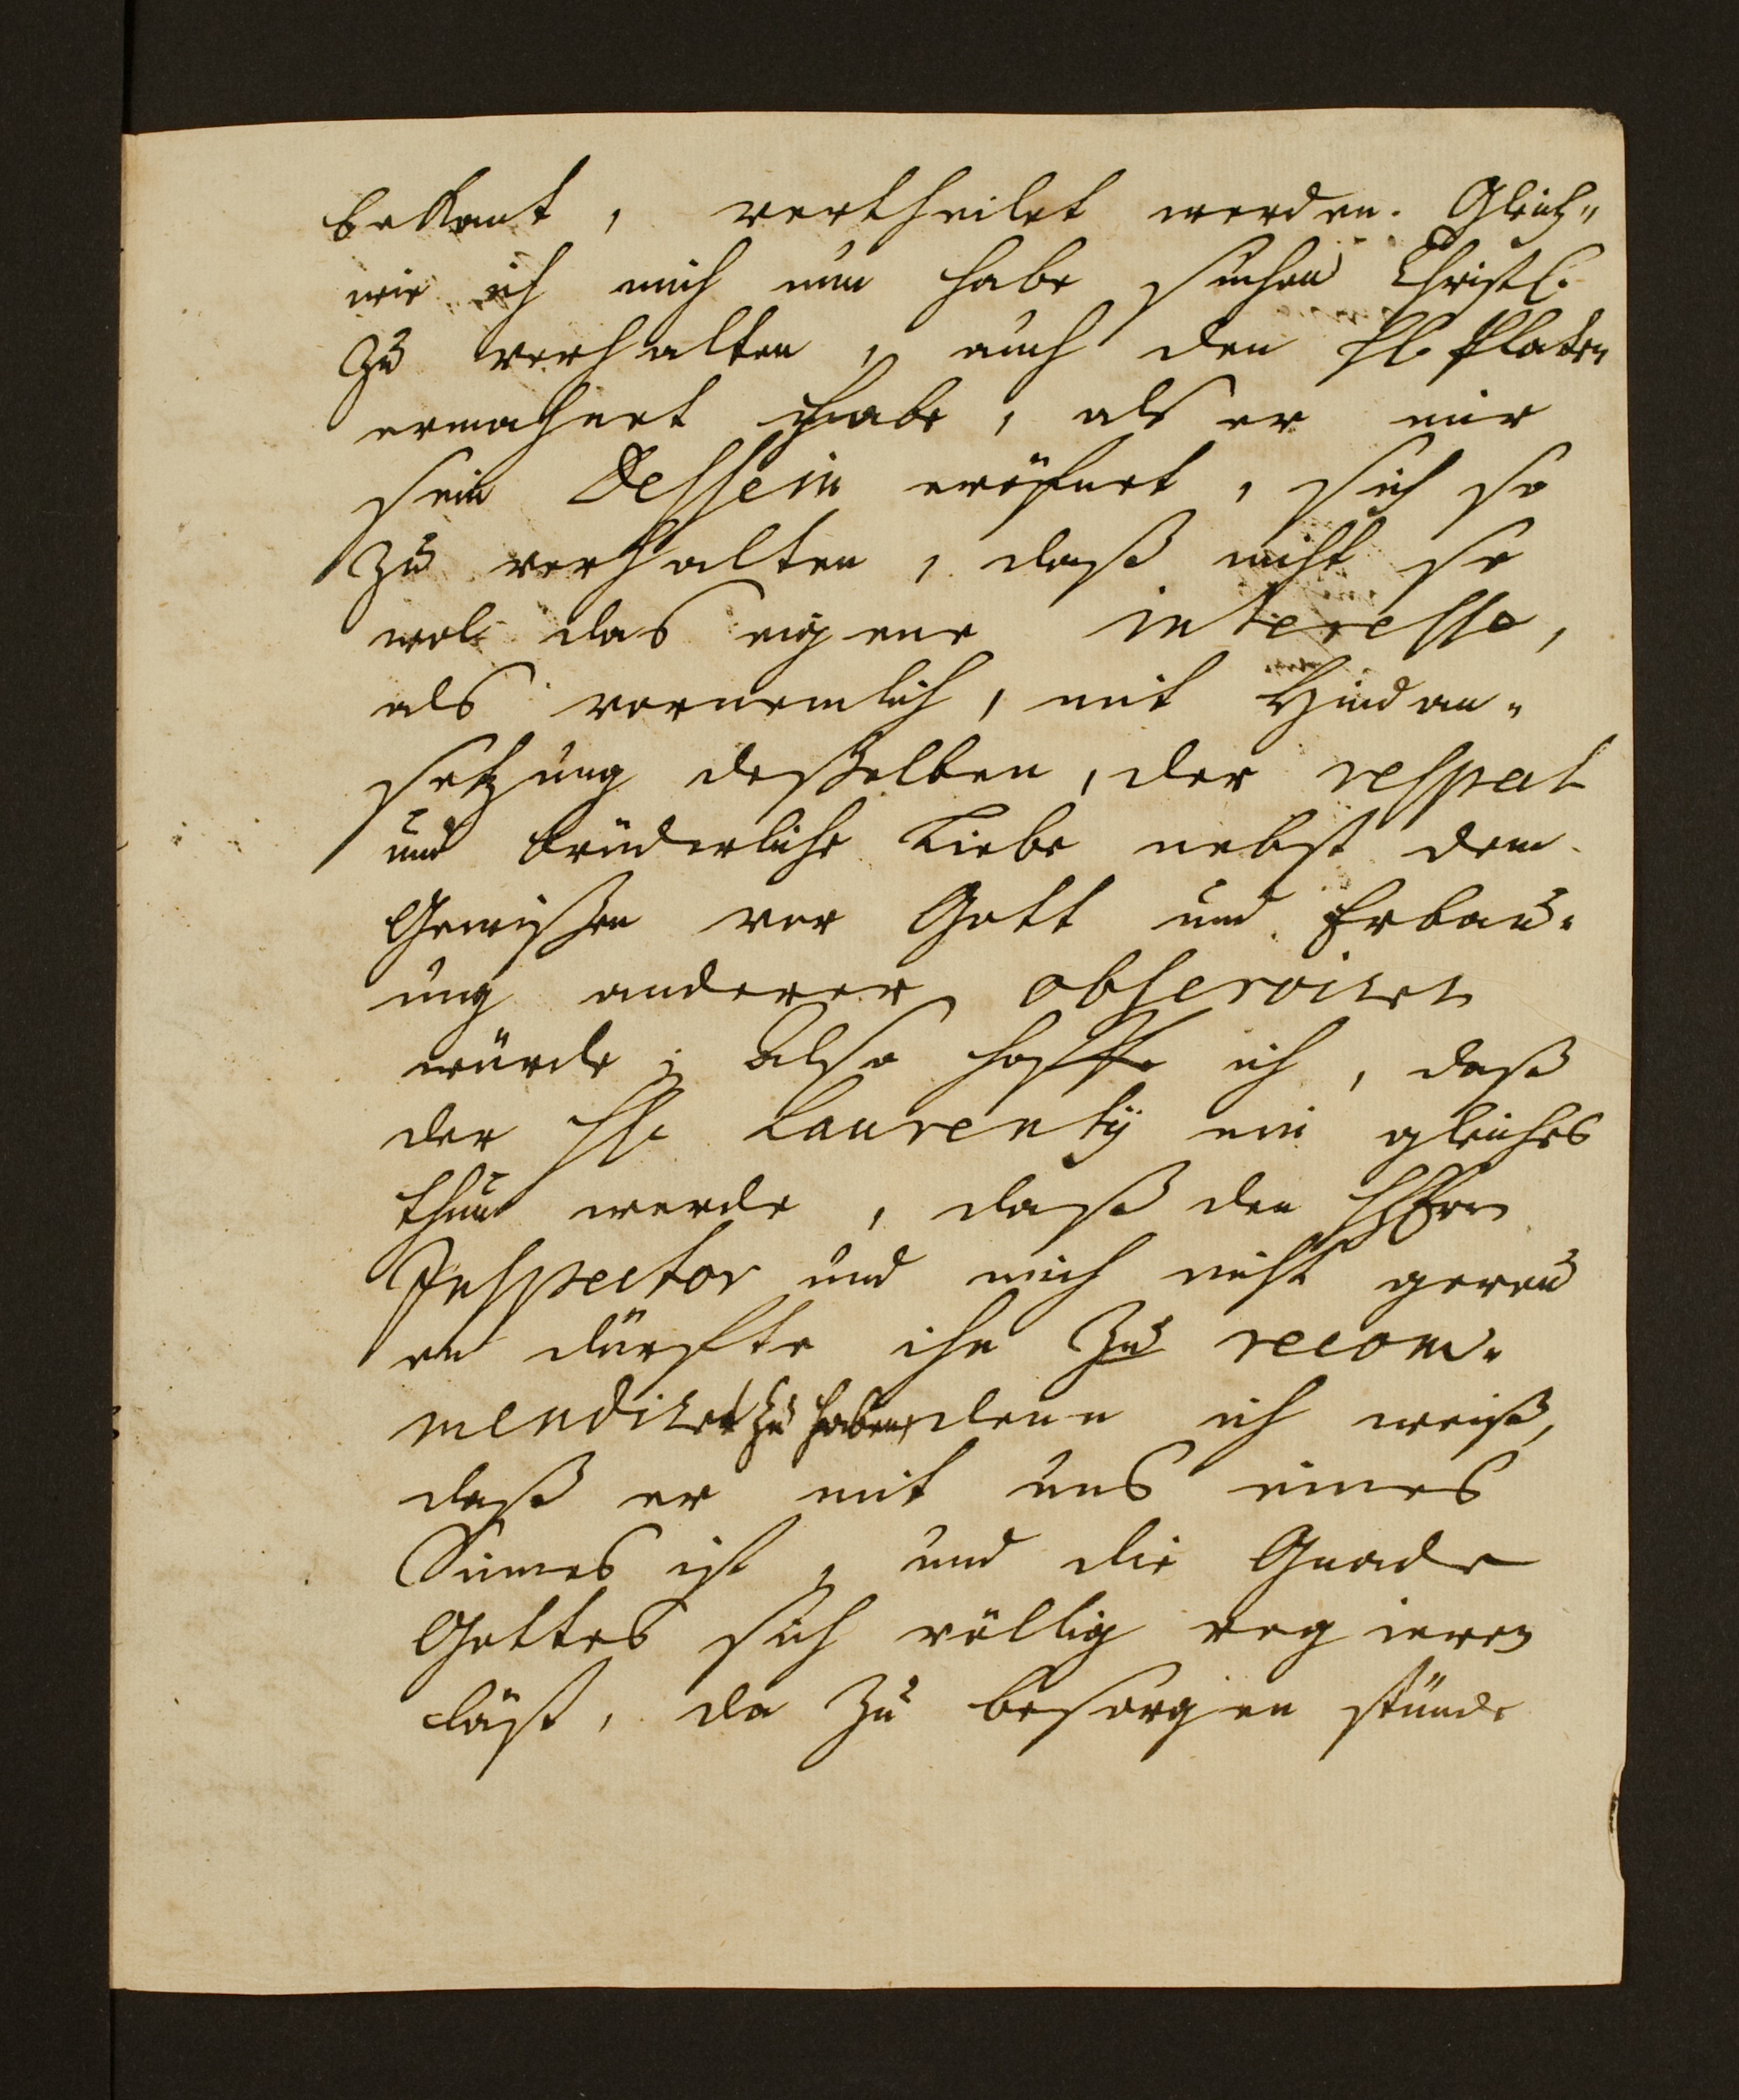 bekant, vertheilet werden. Gleich⸗
wie ich mich nun habe suchen Christl.
zu verhalten, auch den H. Platen
ermahnet habe, als er mir
sein Dessein eröfnet, sich so
zu verhalten, daß nicht so
wol das eigene interesse,
als vornemlich, mit Hindan⸗
setzung deßelben, der respect
und brüderliche Liebe nebst dem
Gewißen vor Gott und Erbau⸗
ung anderer observiret
würde; also hoffe ich, daß
der H. Laurentÿ ein gleiches
thun werde, daß den Herrn
Inspector und mich nicht gereu
en dürfte ihn zu recom⸗
mendiret zu haben, denn ich weiß,
daß er mit uns eines
Sinnes ist, und die Gnade
Gottes sich völlig regieren
läst, da zu besorgen stünde